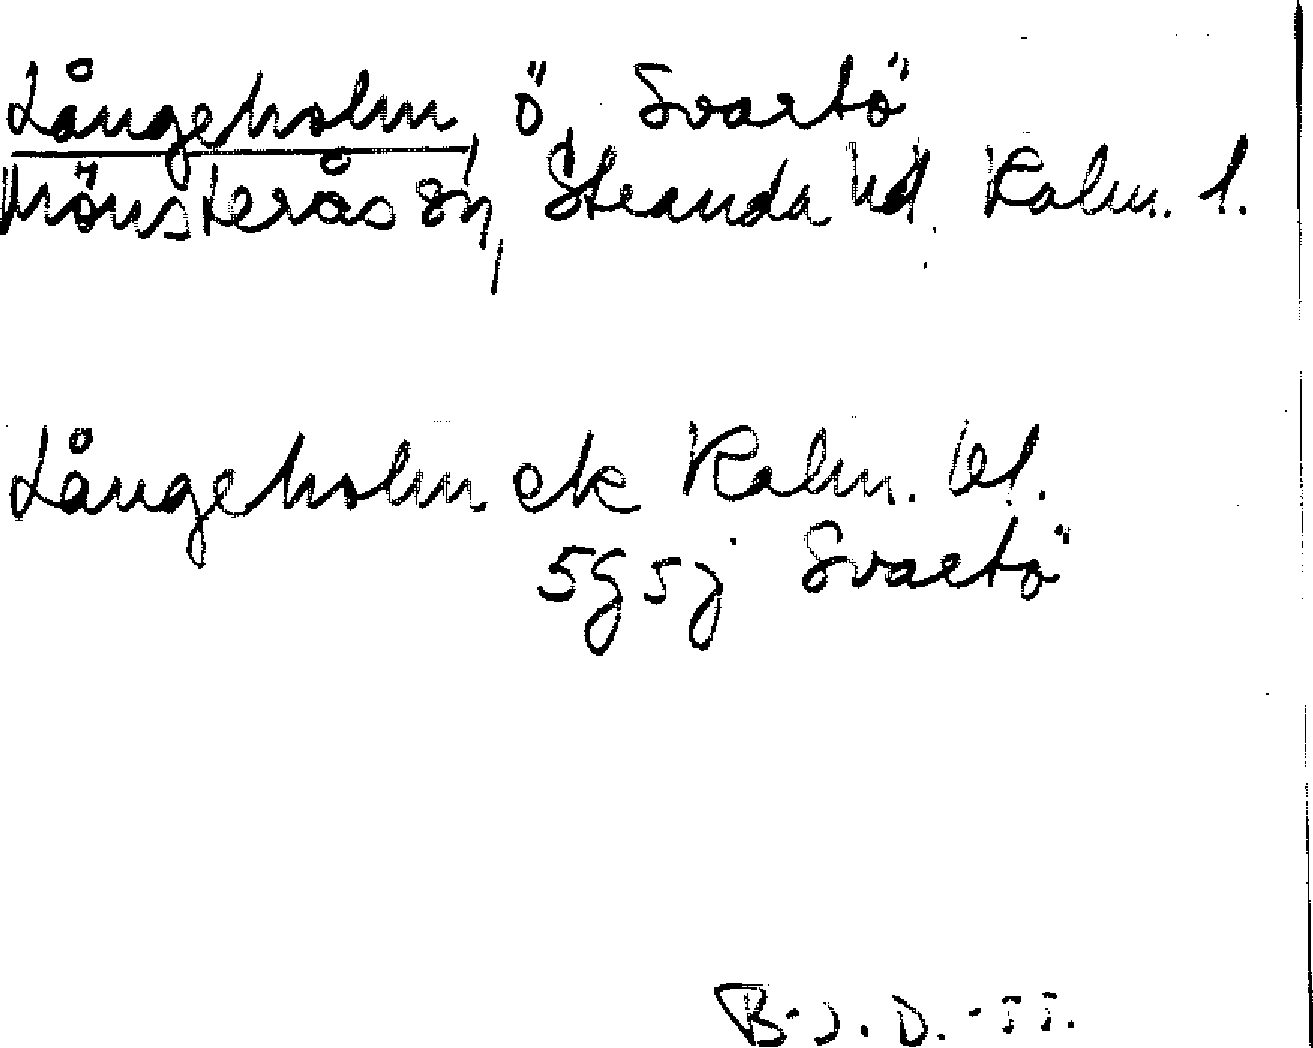 Långeholm, ö, Svartö
Mönsterås sn, Stranda hd. Kalm. l.
Långeholm ek Kalm. bl.
5G5j Svartö
B-J.D.-55.